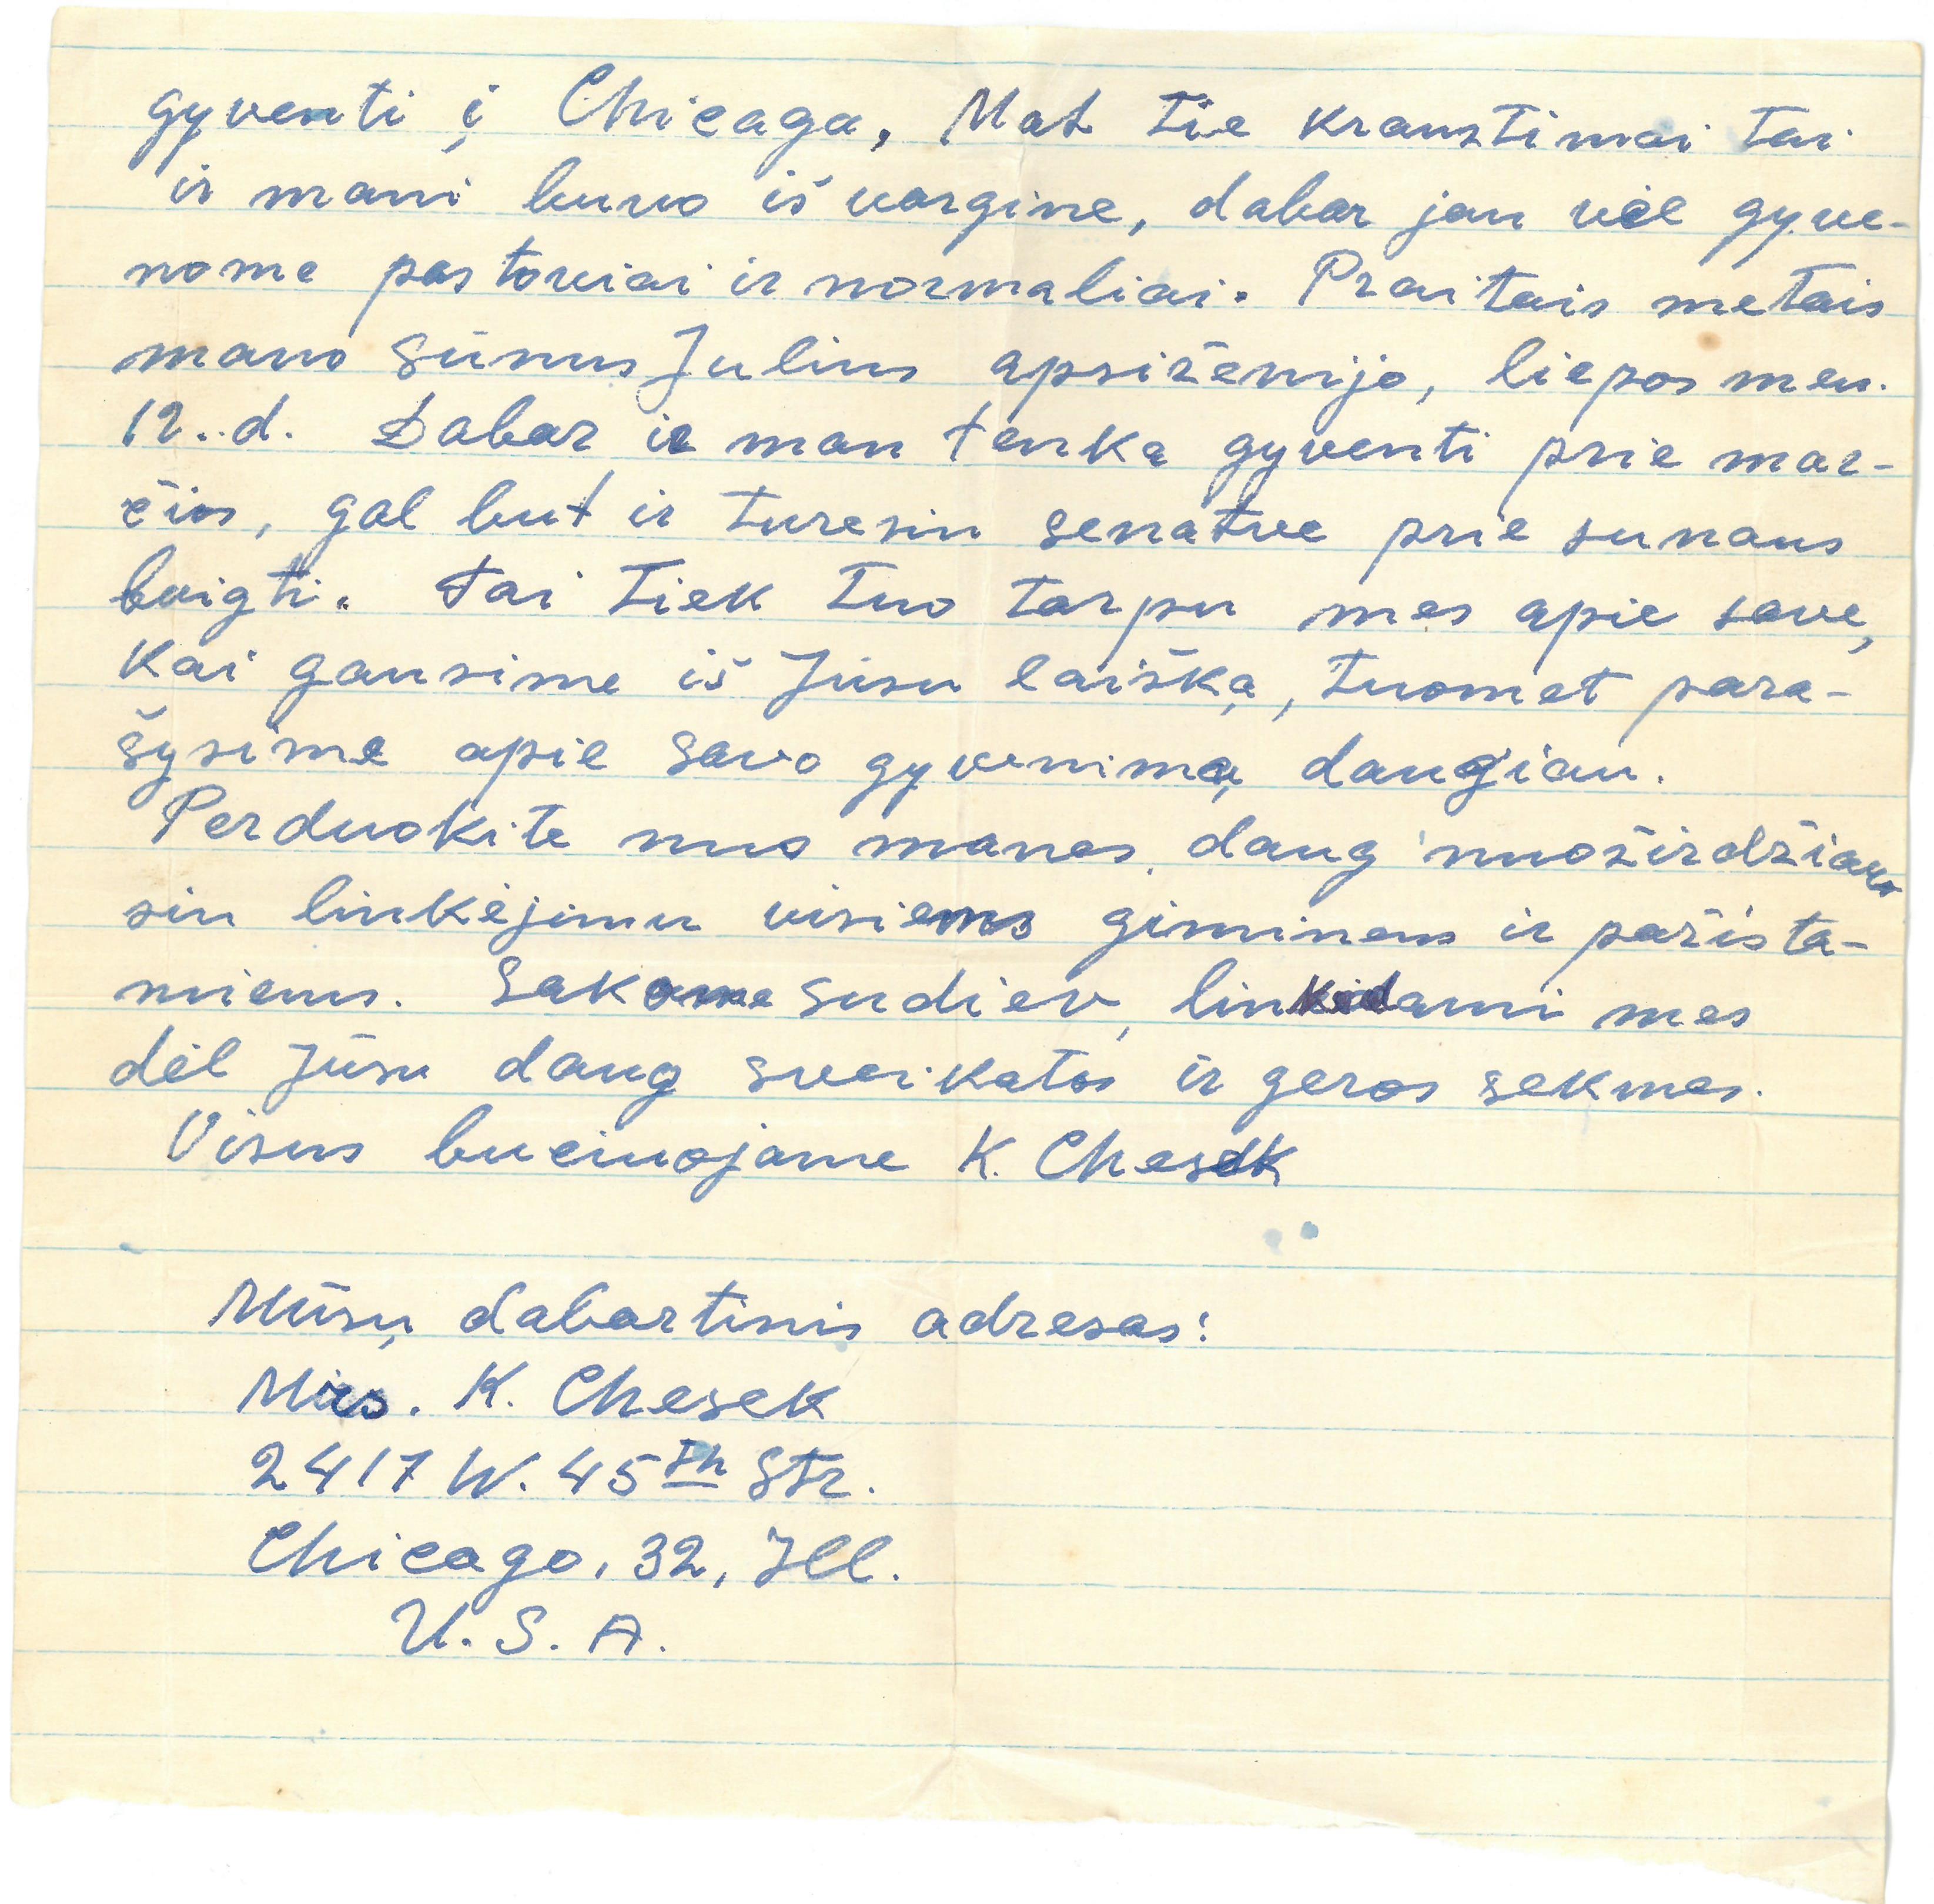 gyventi į Chicaga, Mat tie kraustimai tai
ir mani buvo iš vargine, dabar jau vėl gyve-
nome pastoviai ir normaliai. Praitais metais
mano sūnus Julius apsiženijo, liepos men.
12..d. Dabar ir man tenka gyventi prie mar-
čios, gal but ir turesiu senatve prie sunaus
baigti. Tai tiek tuo tarpu mes apie save,
Kai gausime iš Jūsu laišką, tuomet para-
šysime apie savo gyvenimą daugiau.
Perduokite nuo manes daug nuoširdžiau-
siu linkėjimu visiems giminems ir pažista-
miems. Sakome sudiev, linkėdami mes
dėl Jūsu daug sveikatos ir geros sekmes.
Visus bučiuojame K. Chesek
Mūsų dabartinis adresas:
Mrs. K. Chesek
2417 W. 45th Str.
Chicago, 32, Ill.
U. S. A.